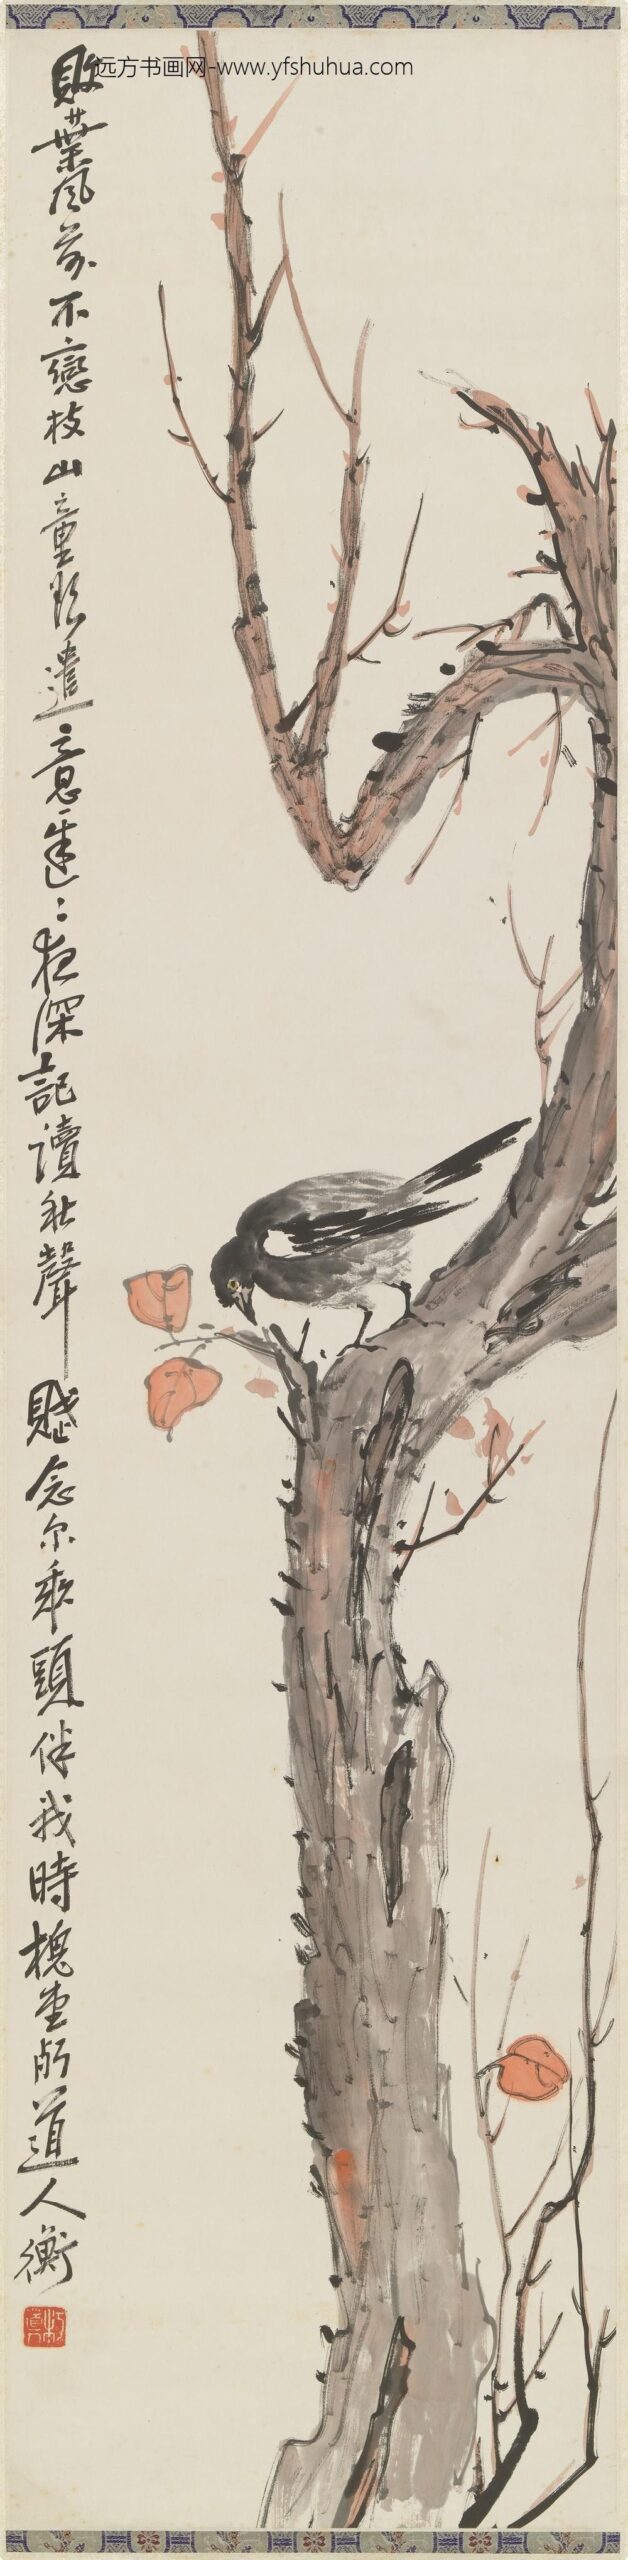 远方书画网-www.yfshuhua.com
敗葉風前不戀枝山童遣意遲〻夜深記讀秋聲賦念尔垂頭伴我時槐堂朽道人衡